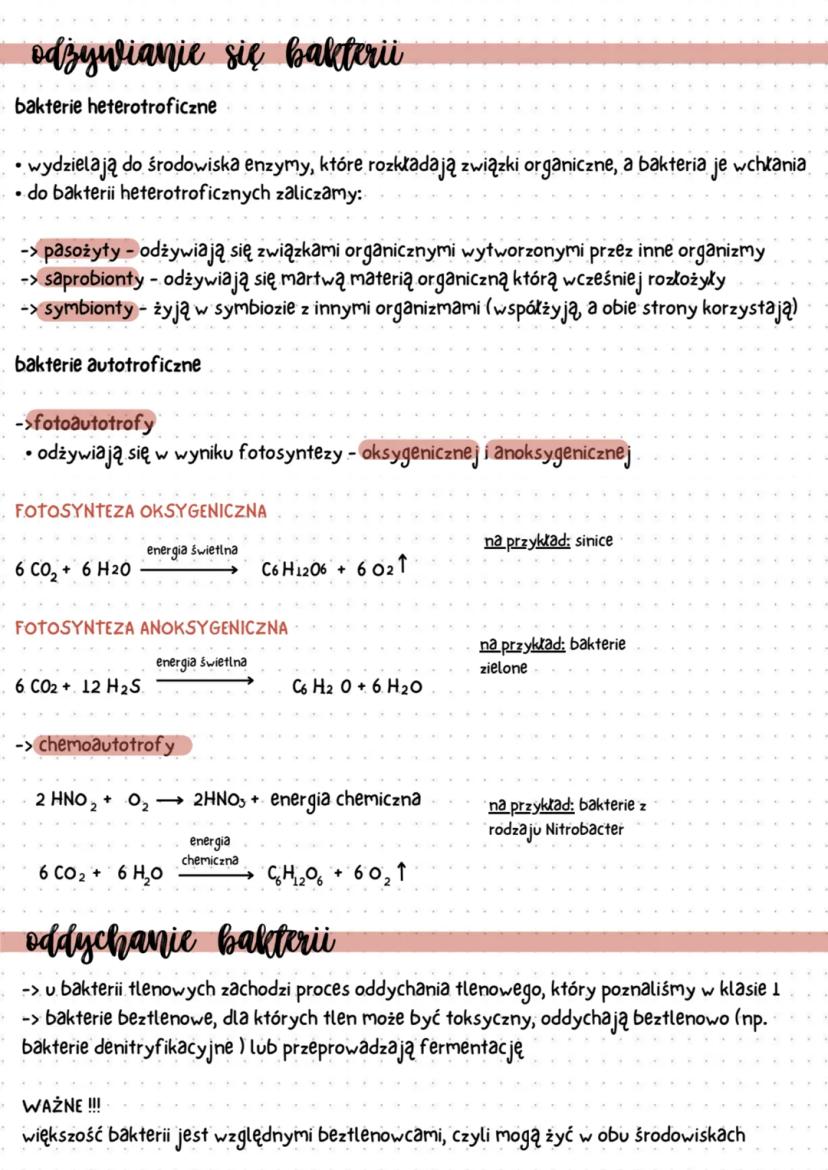 odżywianie się bakterii
bakterie heterotroficzne
• wydzielają do środowiska enzymy, które rozkładają związki organiczne, a bakteria je wchłania
• do bakterii heterotroficznych zaliczamy:
-> pasożyty - odżywiają się związkami organicznymi wytworzonymi przez inne organizmy
-> saprobionty - odżywiają się martwą materią organiczną którą wcześniej rozłożyły
-> symbionty - żyją w symbiozie z innymi organizmami (współżyją, a obie strony korzystają)
bakterie autotroficzne
-> fotoautotrofy
• odżywiają się w wyniku fotosyntezy - oksygenicznej i anoksygenicznej
FOTOSYNTEZA OKSYGENICZNA
na przykład: sinice
energia świetlna
6 CO₂ + 6 H2O ⟶ C6H12O6 + 6 O2↑
FOTOSYNTEZA ANOKSYGENICZNA
na przykład: bakterie
zielone
energia świetlna
6 CO2 + 12 H2S ⟶ C6 H2 O + 6 H2O
-> chemoautotrofy
2 HNO₂ + O₂ ⟶ 2HNO3 + energia chemiczna
na przykład: bakterie z
rodzaju Nitrobacter
energia
chemiczna
6 CO₂ + 6 H₂O ⟶ C₆H₁₂O₆ + 6 O₂ ↑
oddychanie bakterii
-> u bakterii tlenowych zachodzi proces oddychania tlenowego, który poznaliśmy w klasie 1
-> bakterie beztlenowe, dla których tlen może być toksyczny, oddychają beztlenowo (np.
bakterie denitryfikacyjne ) lub przeprowadzają fermentację
WAŻNE !!!
większość bakterii jest względnymi beztlenowcami, czyli mogą żyć w obu środowiskach